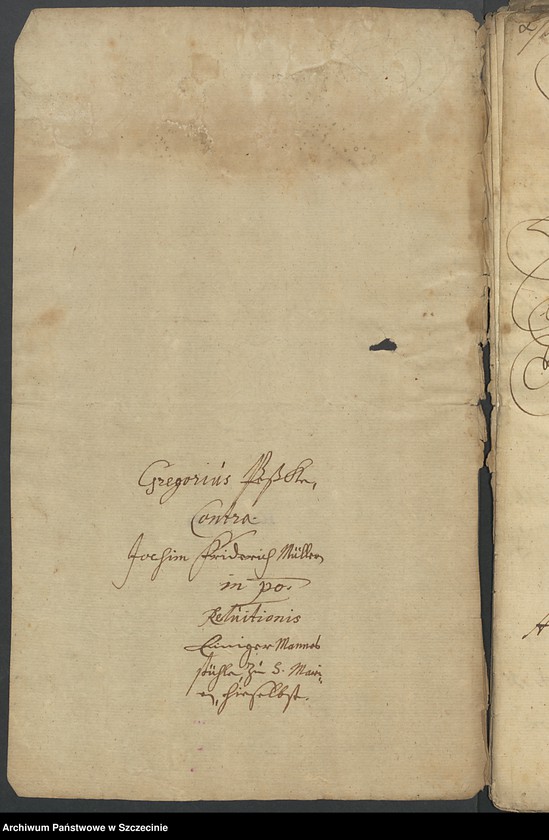 Gregorius Peßke,
Contra
Jochim Friderich Müllern
in po.
Reluitionis
Einiger Manns
stühle, zu S. Mari-
en, hieselbst.
Archiwum Państwowe w Szczecinie